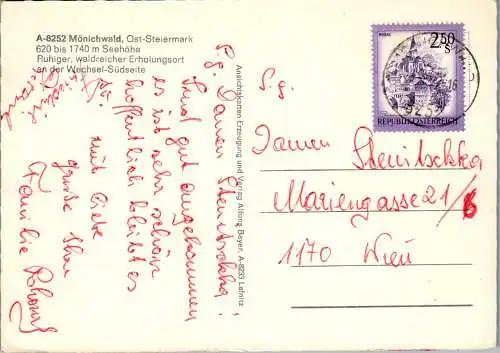 A-8252 Mönichwald, Ost-Steiermark
620 bis 1740 m Seehöhe
Ruhiger, waldreicher Erholungsort
an der Wechsel-Südseite
S. g. Damen Stenitschka!
Sind gut angekommen
es ist sehr schön
hoffentlich bleibt es
so
und liebe
Grüße Ihre
Familie
Ansichtskarten Erzeugung und Verlag Alfong Bayer, A-8233 Lafnitz
MURAU
2.50
S
REPUBLIK ÖSTERREICH
S. g.
Damen Stenitschka
Mariengasse 21/6
1170 Wien